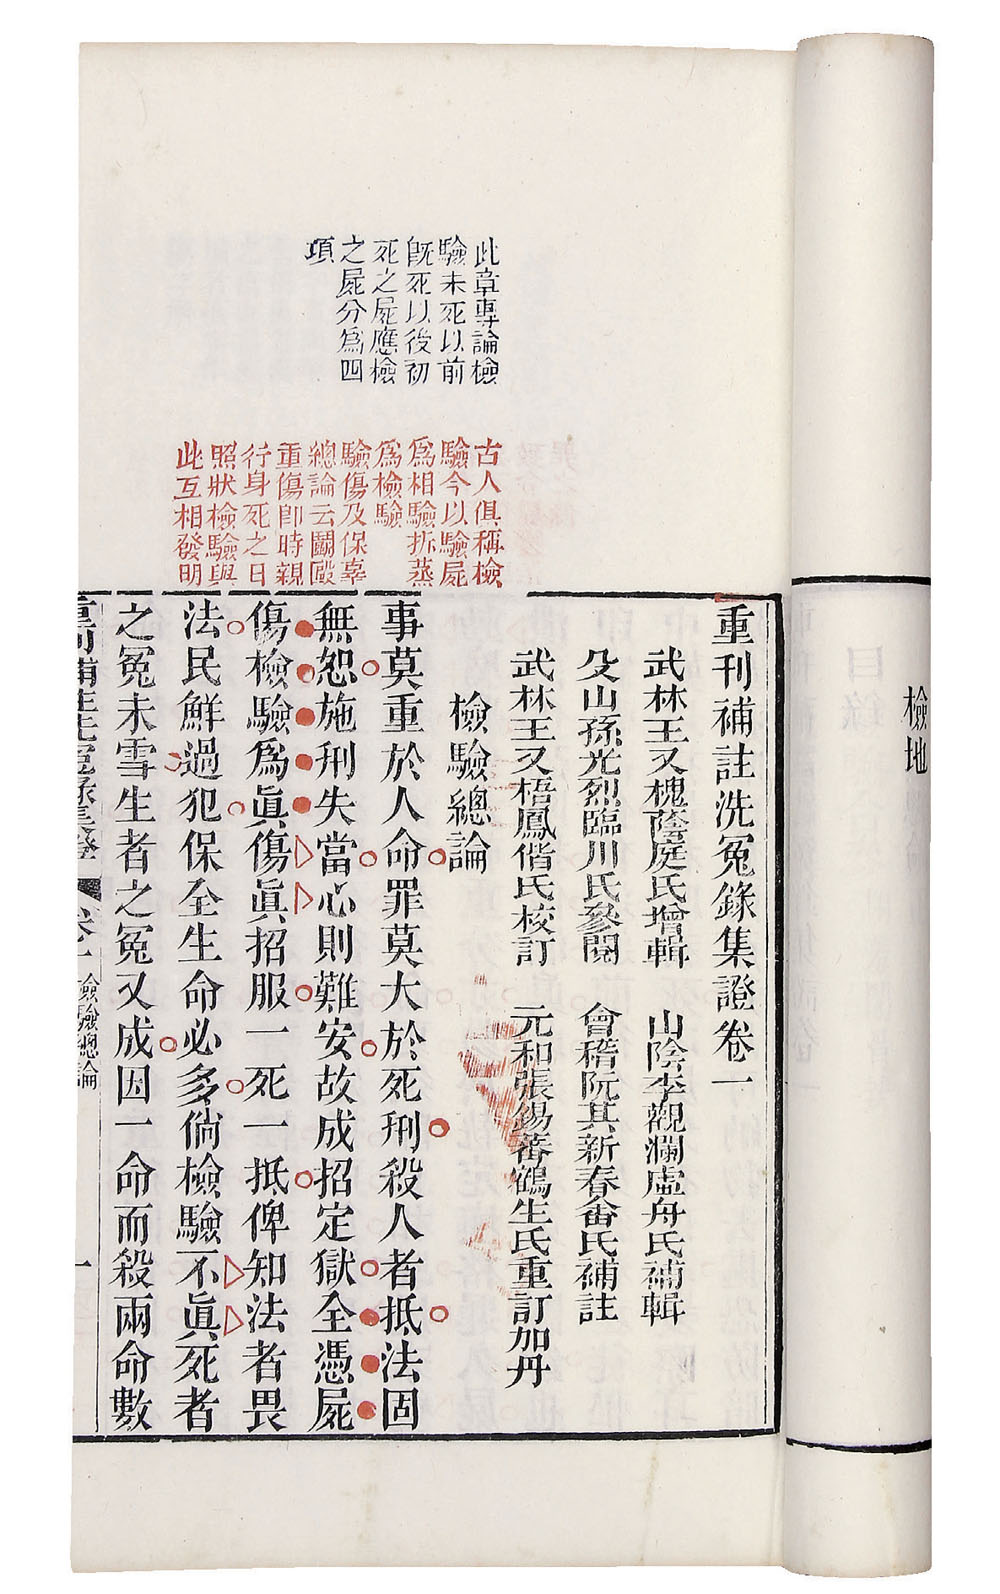 檢地
目錄
重刊補註洗冤錄集證卷一
武林王又槐蔭庭氏增輯　山陰李觀瀾虛舟氏補輯
殳山孫光烈臨川氏參閱　會稽阮其新春畬氏補註
武林王又梧鳳偕氏校訂　元和張錫蕃鶴生氏重訂加丹
檢驗總論
事莫重於人命罪莫大於死刑殺人者抵法固
無恕施刑失當心則難安故成招定獄全憑屍
傷檢驗爲眞傷眞招服一死一抵俾知法者畏
法民鮮過犯保全生命必多倘檢驗不眞死者
之冤未雪生者之冤又成因一命而殺兩命數
重刊補註洗冤錄集證
卷一
檢驗總論
一
此章專論檢
驗未死以前
旣死以後初
死之屍應檢
之屍分爲四
項
古人俱稱檢
驗今以驗屍
爲相驗拆蒸
爲檢驗
驗傷及保辜
總論云鬭毆
重傷卽時親
行身死之日
照狀檢驗與
此互相發明